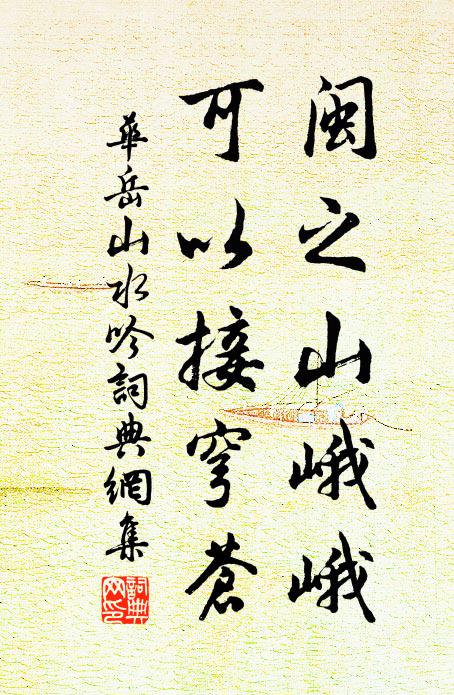 闽之山峨峨
可以接穹苍
華岳山水吟詞典網集
詞典網印